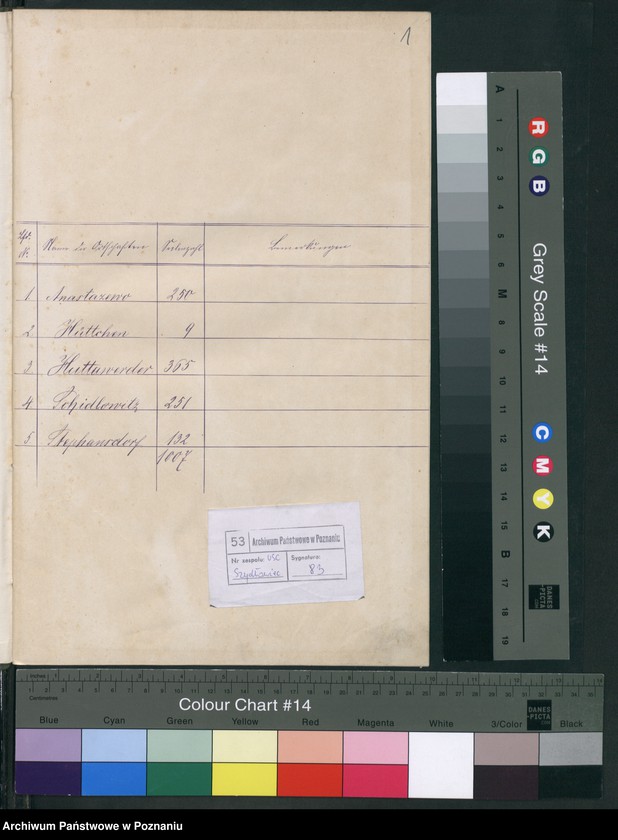 1
Lfd. Nr. Name der Ortschaften Seelenzahl Bemerkungen
1 Anastazewo 250
2 Hüttchen 9
3 Huttawerder 365
4 Schidlowetz 251
5 Stephansdorf 132
1007
53 Archiwum Państwowe w Poznaniu
Nr zespołu: USC Sygnatura:
Szydłowiec 83
A
1
2
3
4
5
6
M
8
9
10
11
12
13
14
15
B
17
18
19
R
G
B
Grey Scale #14
C
M
Y
K
DANES
-PICTA
.COM
Inches
Centimetres
Colour Chart #14
DANES
-PICTA
.COM
Blue Cyan Green Yellow Red Magenta White 3/Color Black
Archiwum Państwowe w Poznaniu